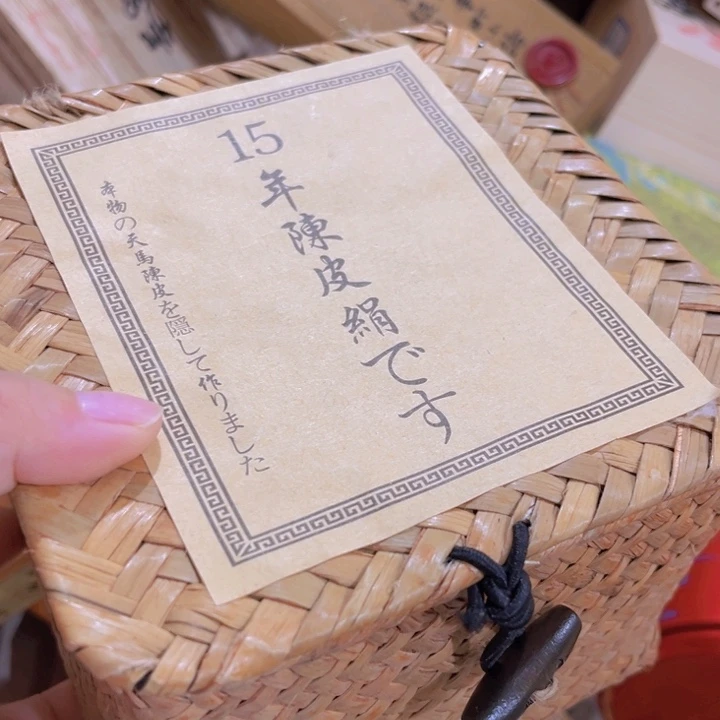 15年陳皮絹です
本物の天馬陳皮を隠して作りました